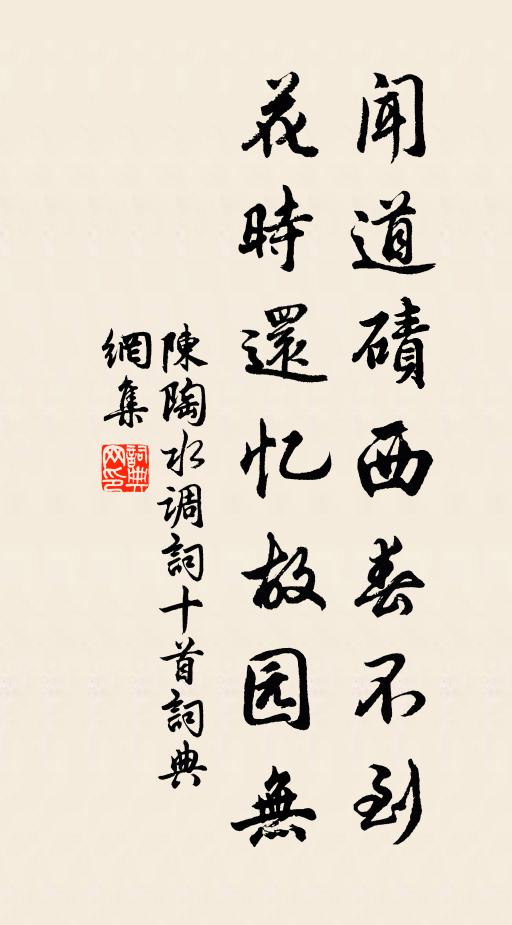 闻道磧西春不到
花時還忆故园無
陳陶水调詞十首詞典
網集
詞典网印